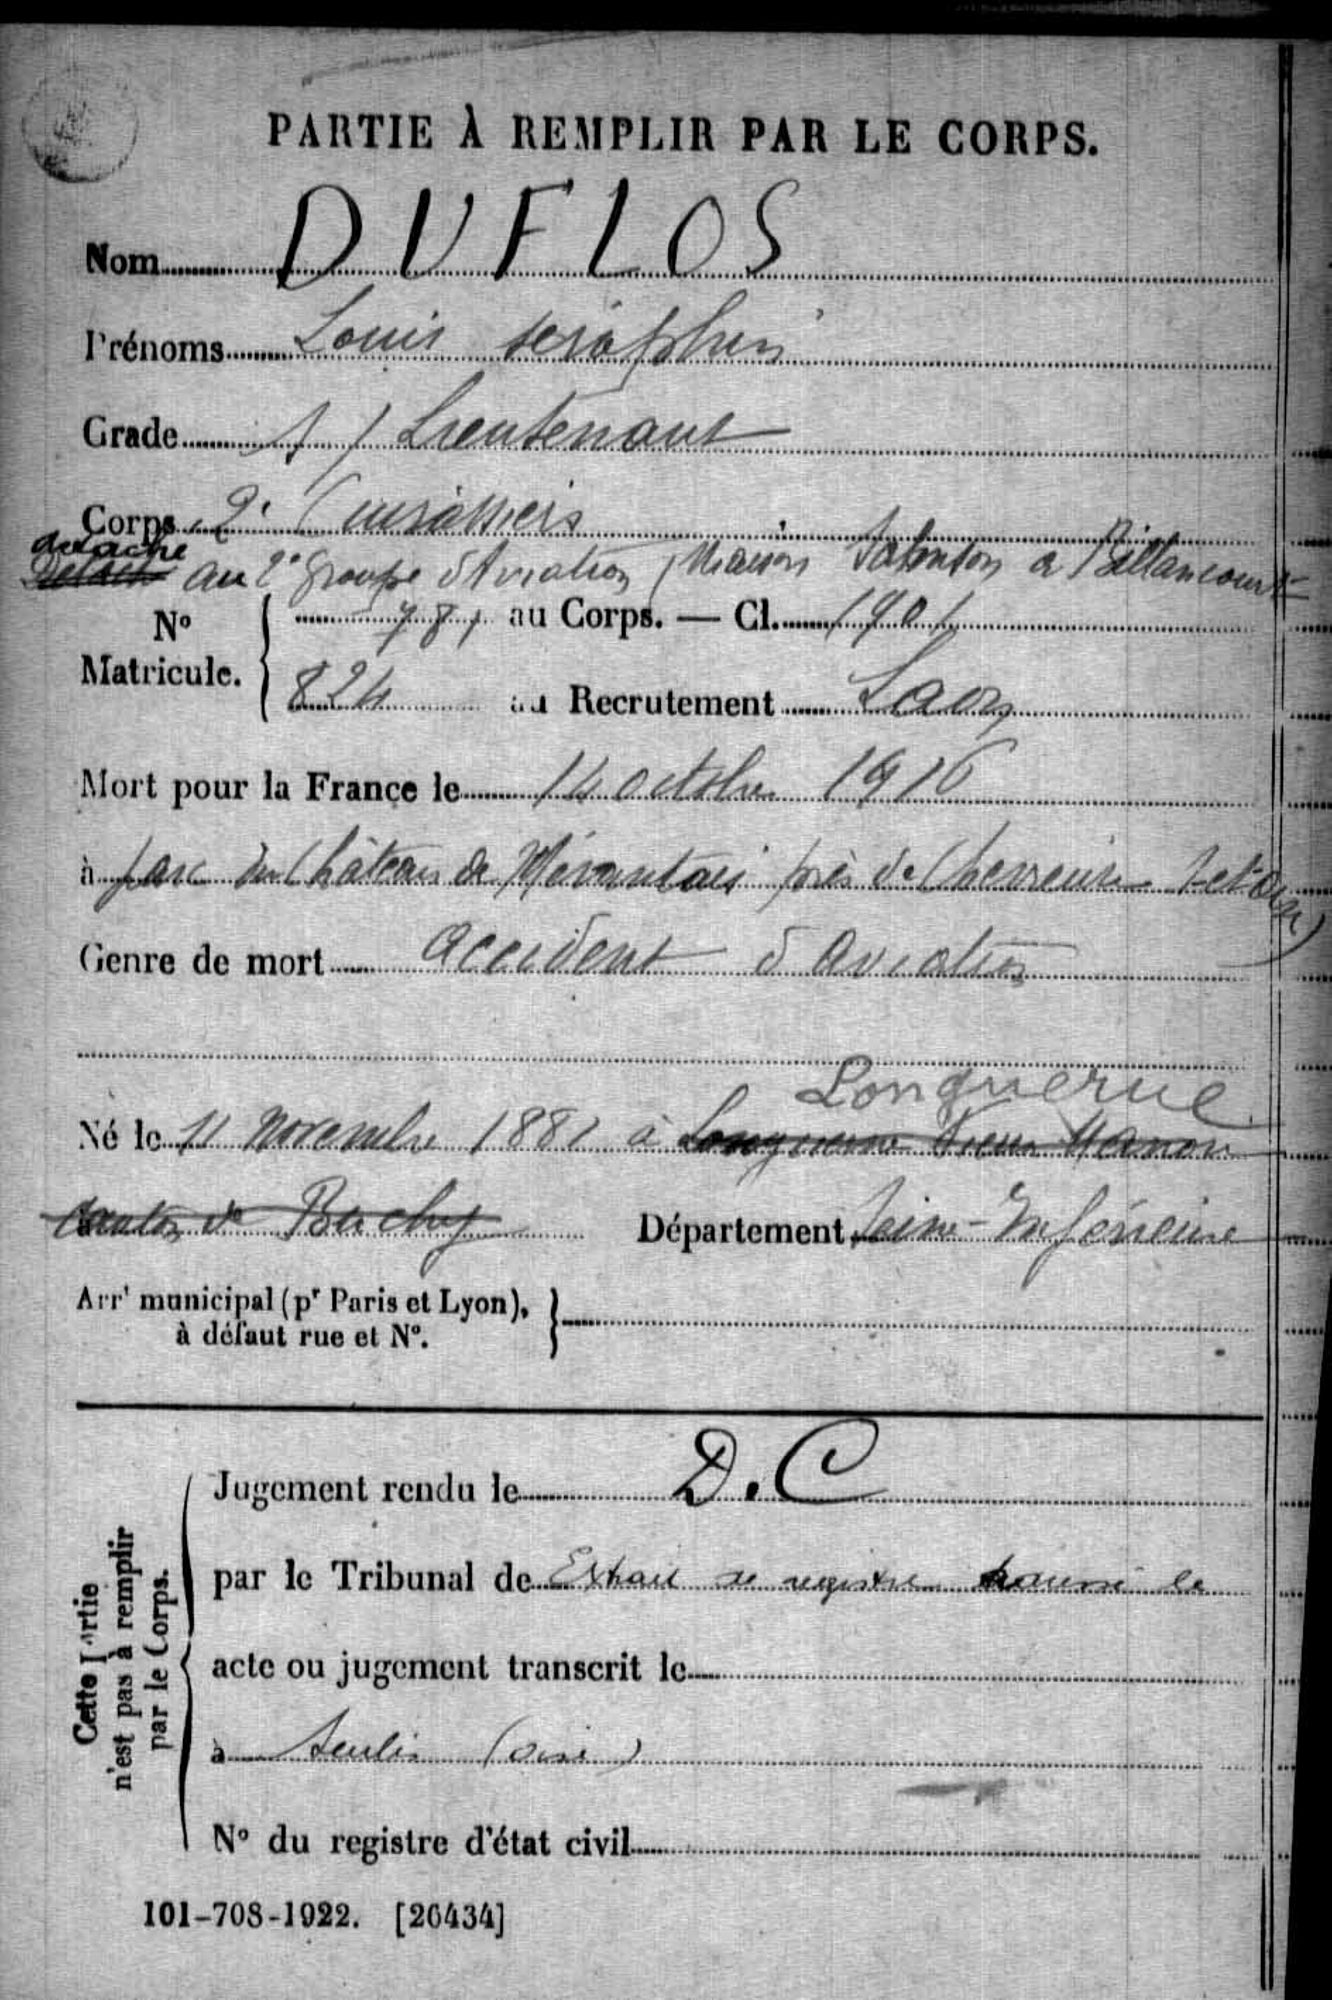 PARTIE À REMPLIR PAR LE CORPS.
Nom DUFLOS
Prénoms Louis Séraphin
Grade S/Lieutenant
Corps 2e Cuirassiers
détaché
Détach au 2e groupe d'Aviation (Maison Salmson à Billancourt
No Matricule. { 781 au Corps. — Cl. 1901
824 au Recrutement Laon
Mort pour la France le 14 octobre 1916
à parc du Château de Mérantais près de Chevreuse S et Oise)
Genre de mort accident d'aviation
Longuerue
Né le 11 Novembre 1881 à Longuerue Vieux Manoir
Canton de Buchy Département Seine-Inférieure
Arrt municipal (pr Paris et Lyon), à défaut rue et No. }
Cette Partie n'est pas à remplir par le Corps.
Jugement rendu le D.C
par le Tribunal de Extrait de registre le
acte ou jugement transcrit le
à Senlis (Oise)
No du registre d'état civil
101-708-1922. [26434]